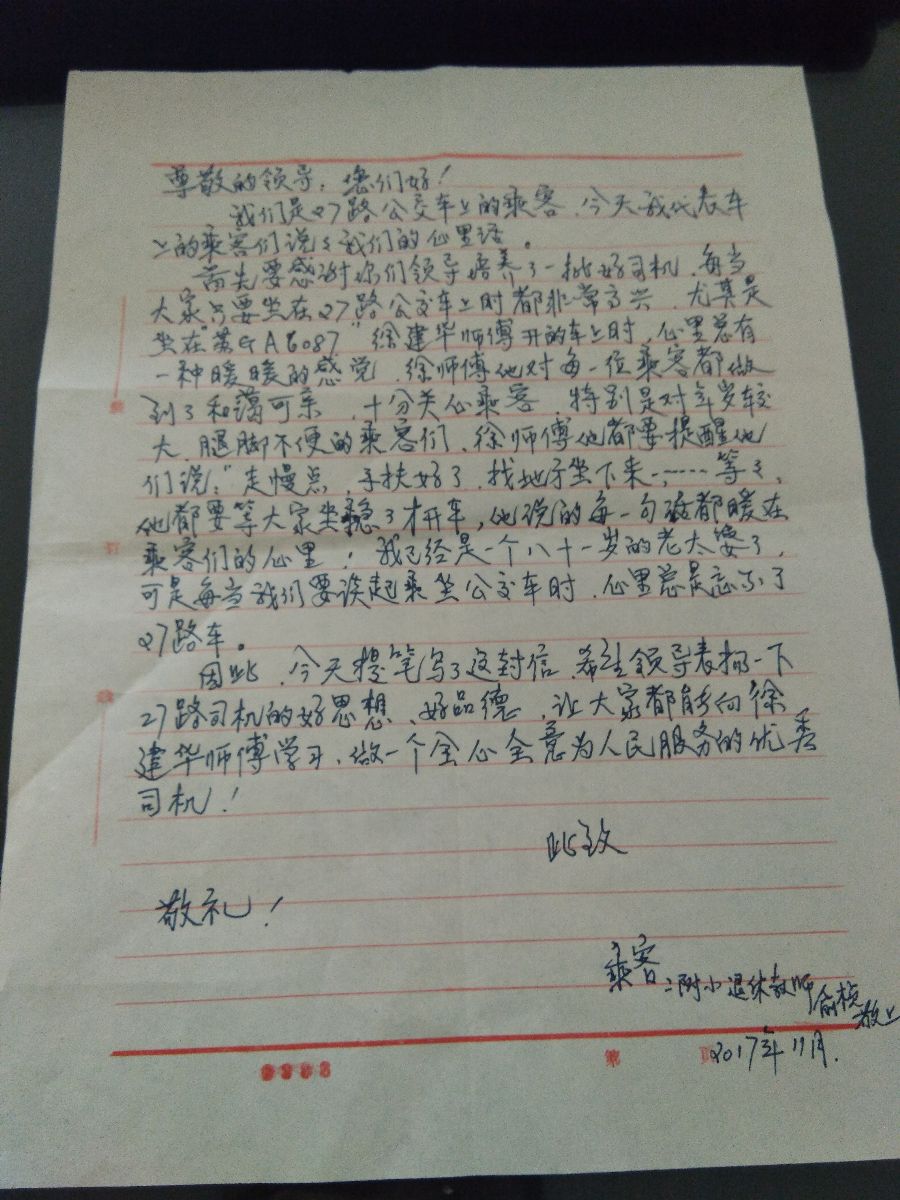 尊敬的领导，您们好！
我们是27路公交车上的乘客，今天我代表车
上的乘客们说说我们的心里话。
首先要感谢你们领导培养了一批好司机，每当
大家只要坐在27路公交车上时都非常高兴，尤其是
坐在"苏GA6087"徐建华师傅开的车上时，心里总有
一种暖暖的感觉，徐师傅他对每一位乘客都做
到了和蔼可亲，十分关心乘客，特别是对年岁较
大、腿脚不便的乘客们，徐师傅他都要提醒他
们说："走慢点，手扶好了，找地方坐下来……等等，
他都要等大家坐稳了才开车，他说的每一句话都暖在
乘客们的心里！我已经是一个八十一岁的老太婆了，
可是每当我们要谈起乘坐公交车时，心里总是忘不了
27路车。
因此，今天提笔写了这封信，希望领导表扬一下
27路司机的好思想、好品德，让大家都能向徐
建华师傅学习，做一个全心全意为人民服务的优秀
司机！
此致
敬礼！
乘客
二附小退休教师 俞桢
敬上
第 页
2017年11月.